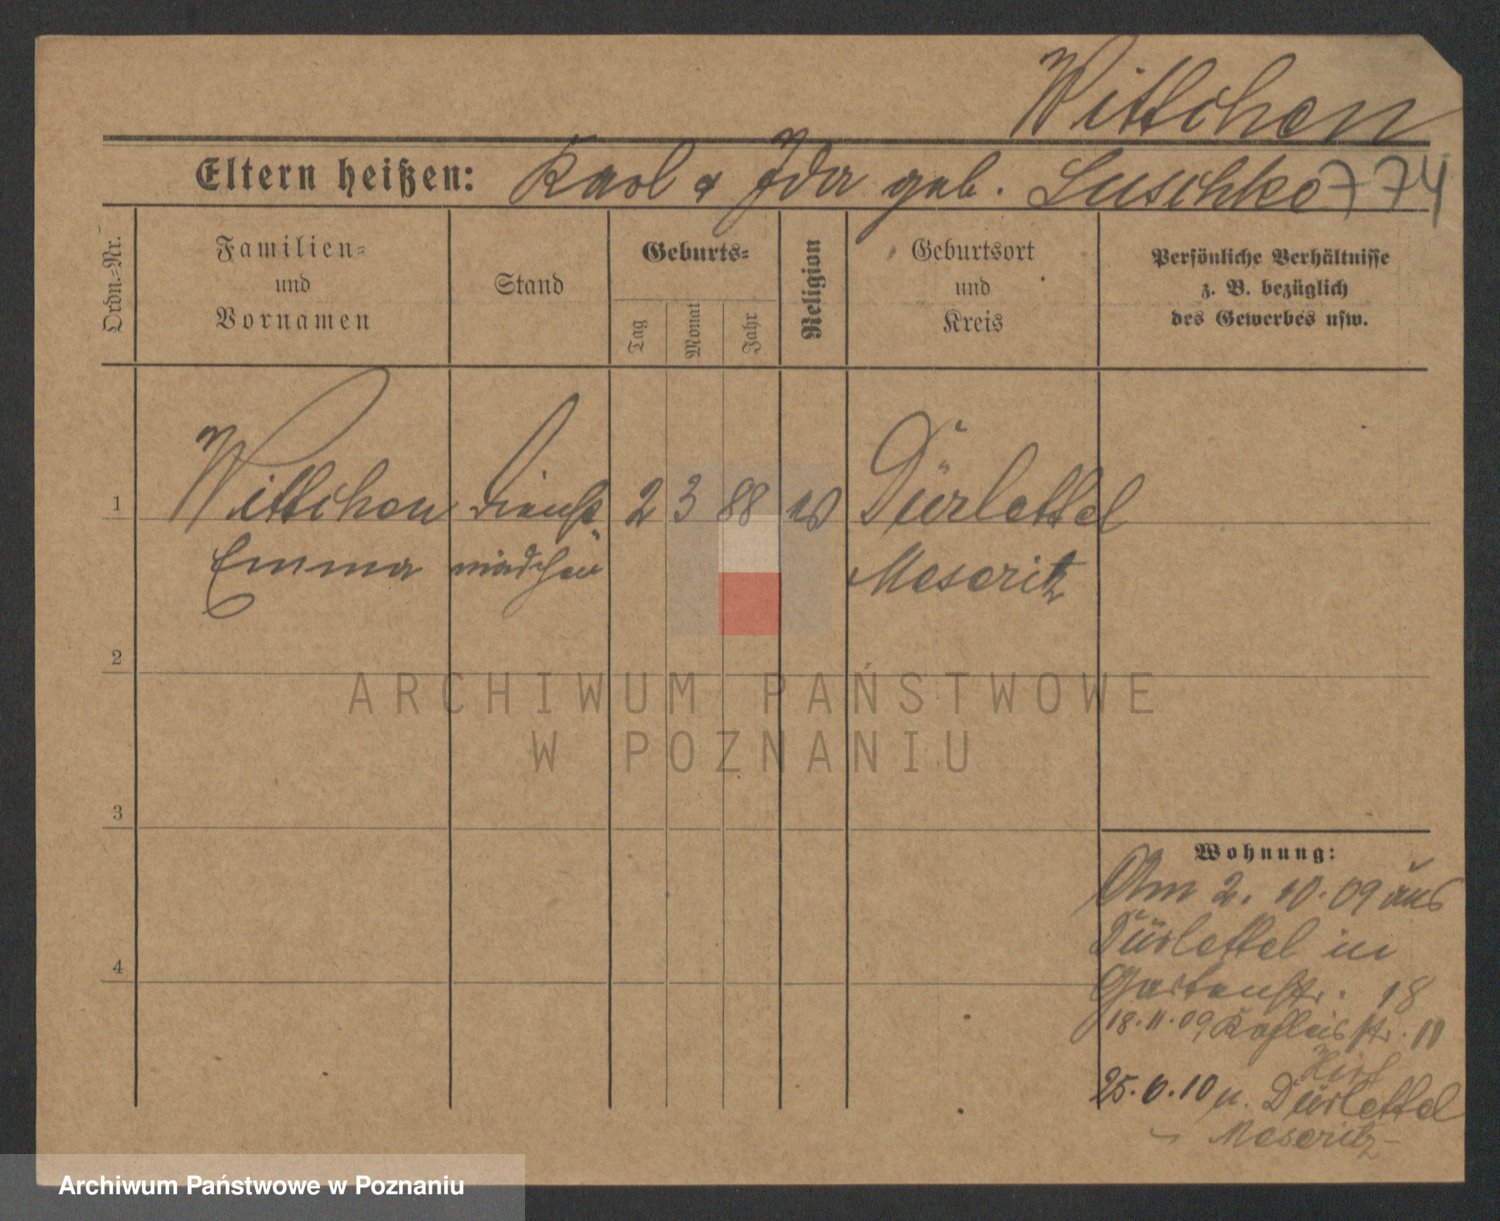 Wittchen
Eltern heißen: Karl & Ida geb. Luschke 774
Ordn.=Nr.
Familien=
und
Vornamen
Stand
Geburts=
Tag
Monat
Jahr
Religion
Geburtsort
und
Kreis
Persönliche Verhältnisse
z. B. bezüglich
des Gewerbes usw.
1 Wittchen Dienst 2 3 88 Dürlettel
Emma mädchen Meseritz
2
3
4
Wohnung:
Am 2. 10. 09 aus
Dürlettel in
Gartenstr. 18
18. 11. 09 11
25. 6. 10 n. Dürlettel
Meseritz
ARCHIWUM PAŃSTWOWE
W POZNANIU
Archiwum Państwowe w Poznaniu